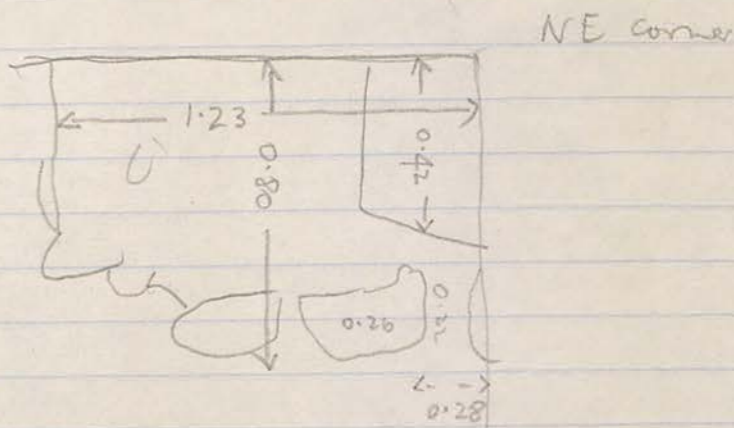 NE corner
1.23
0.80
0.42
0.26
0.22
0.28